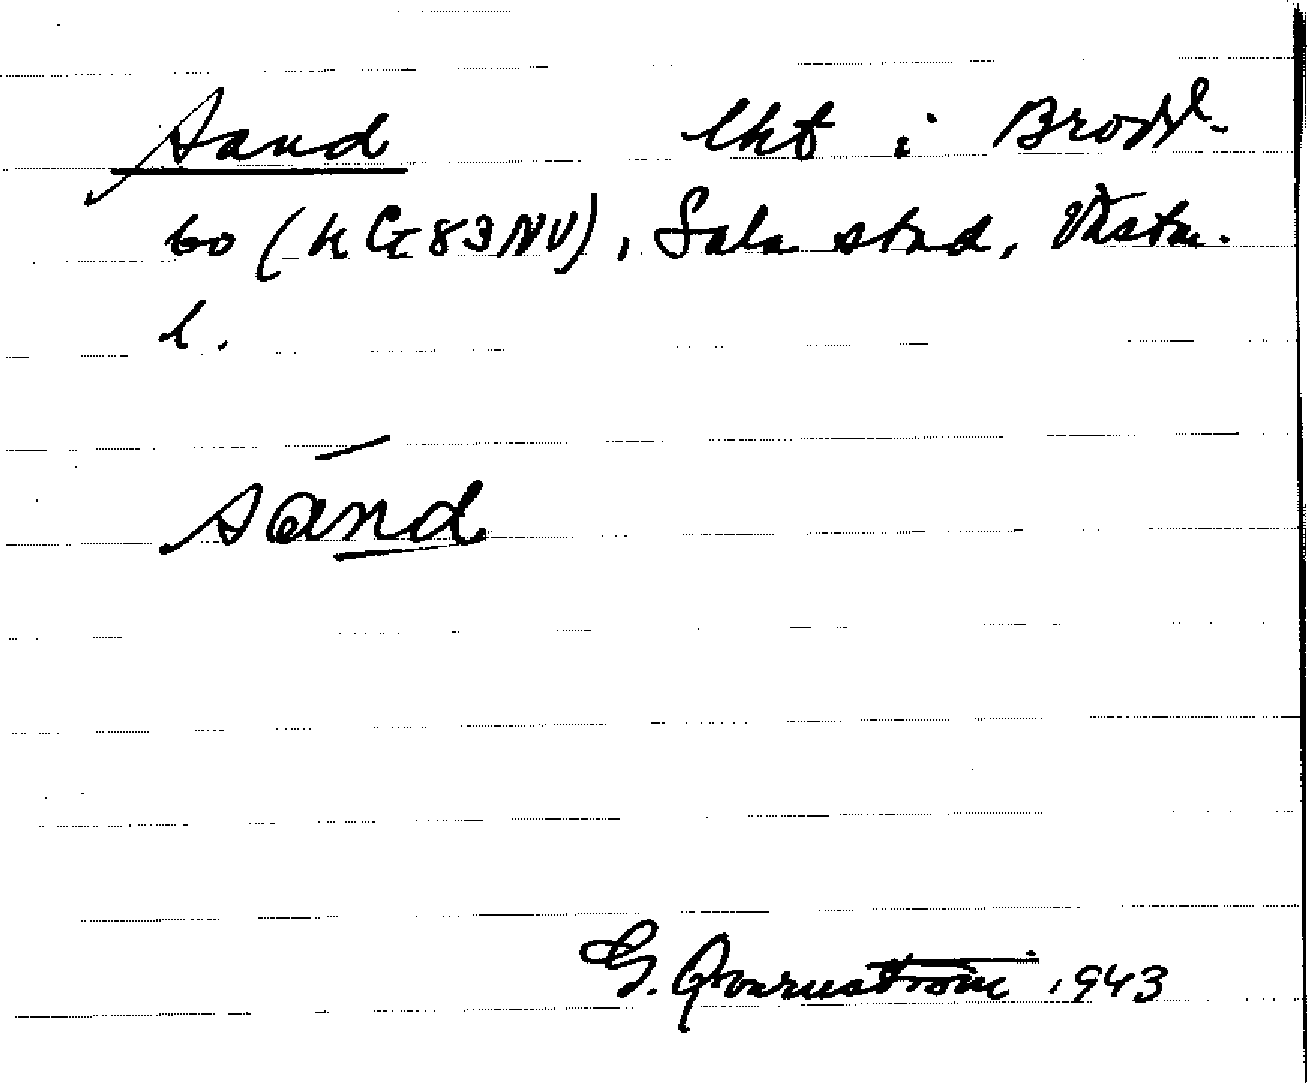 Sand lht i Broddbo (k G 83 NV), Sala stad, Västm. l.
sānd
G. Qvarnström 1943